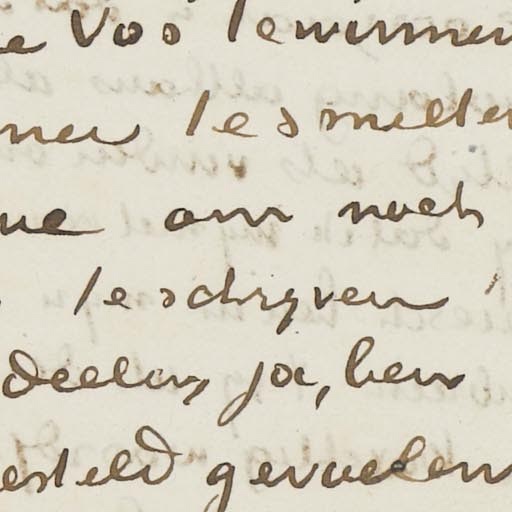 e Vos te winnen
ner te smelten
ue om noch
te schrijven
deelen, ja, ben
esteld gevoelen